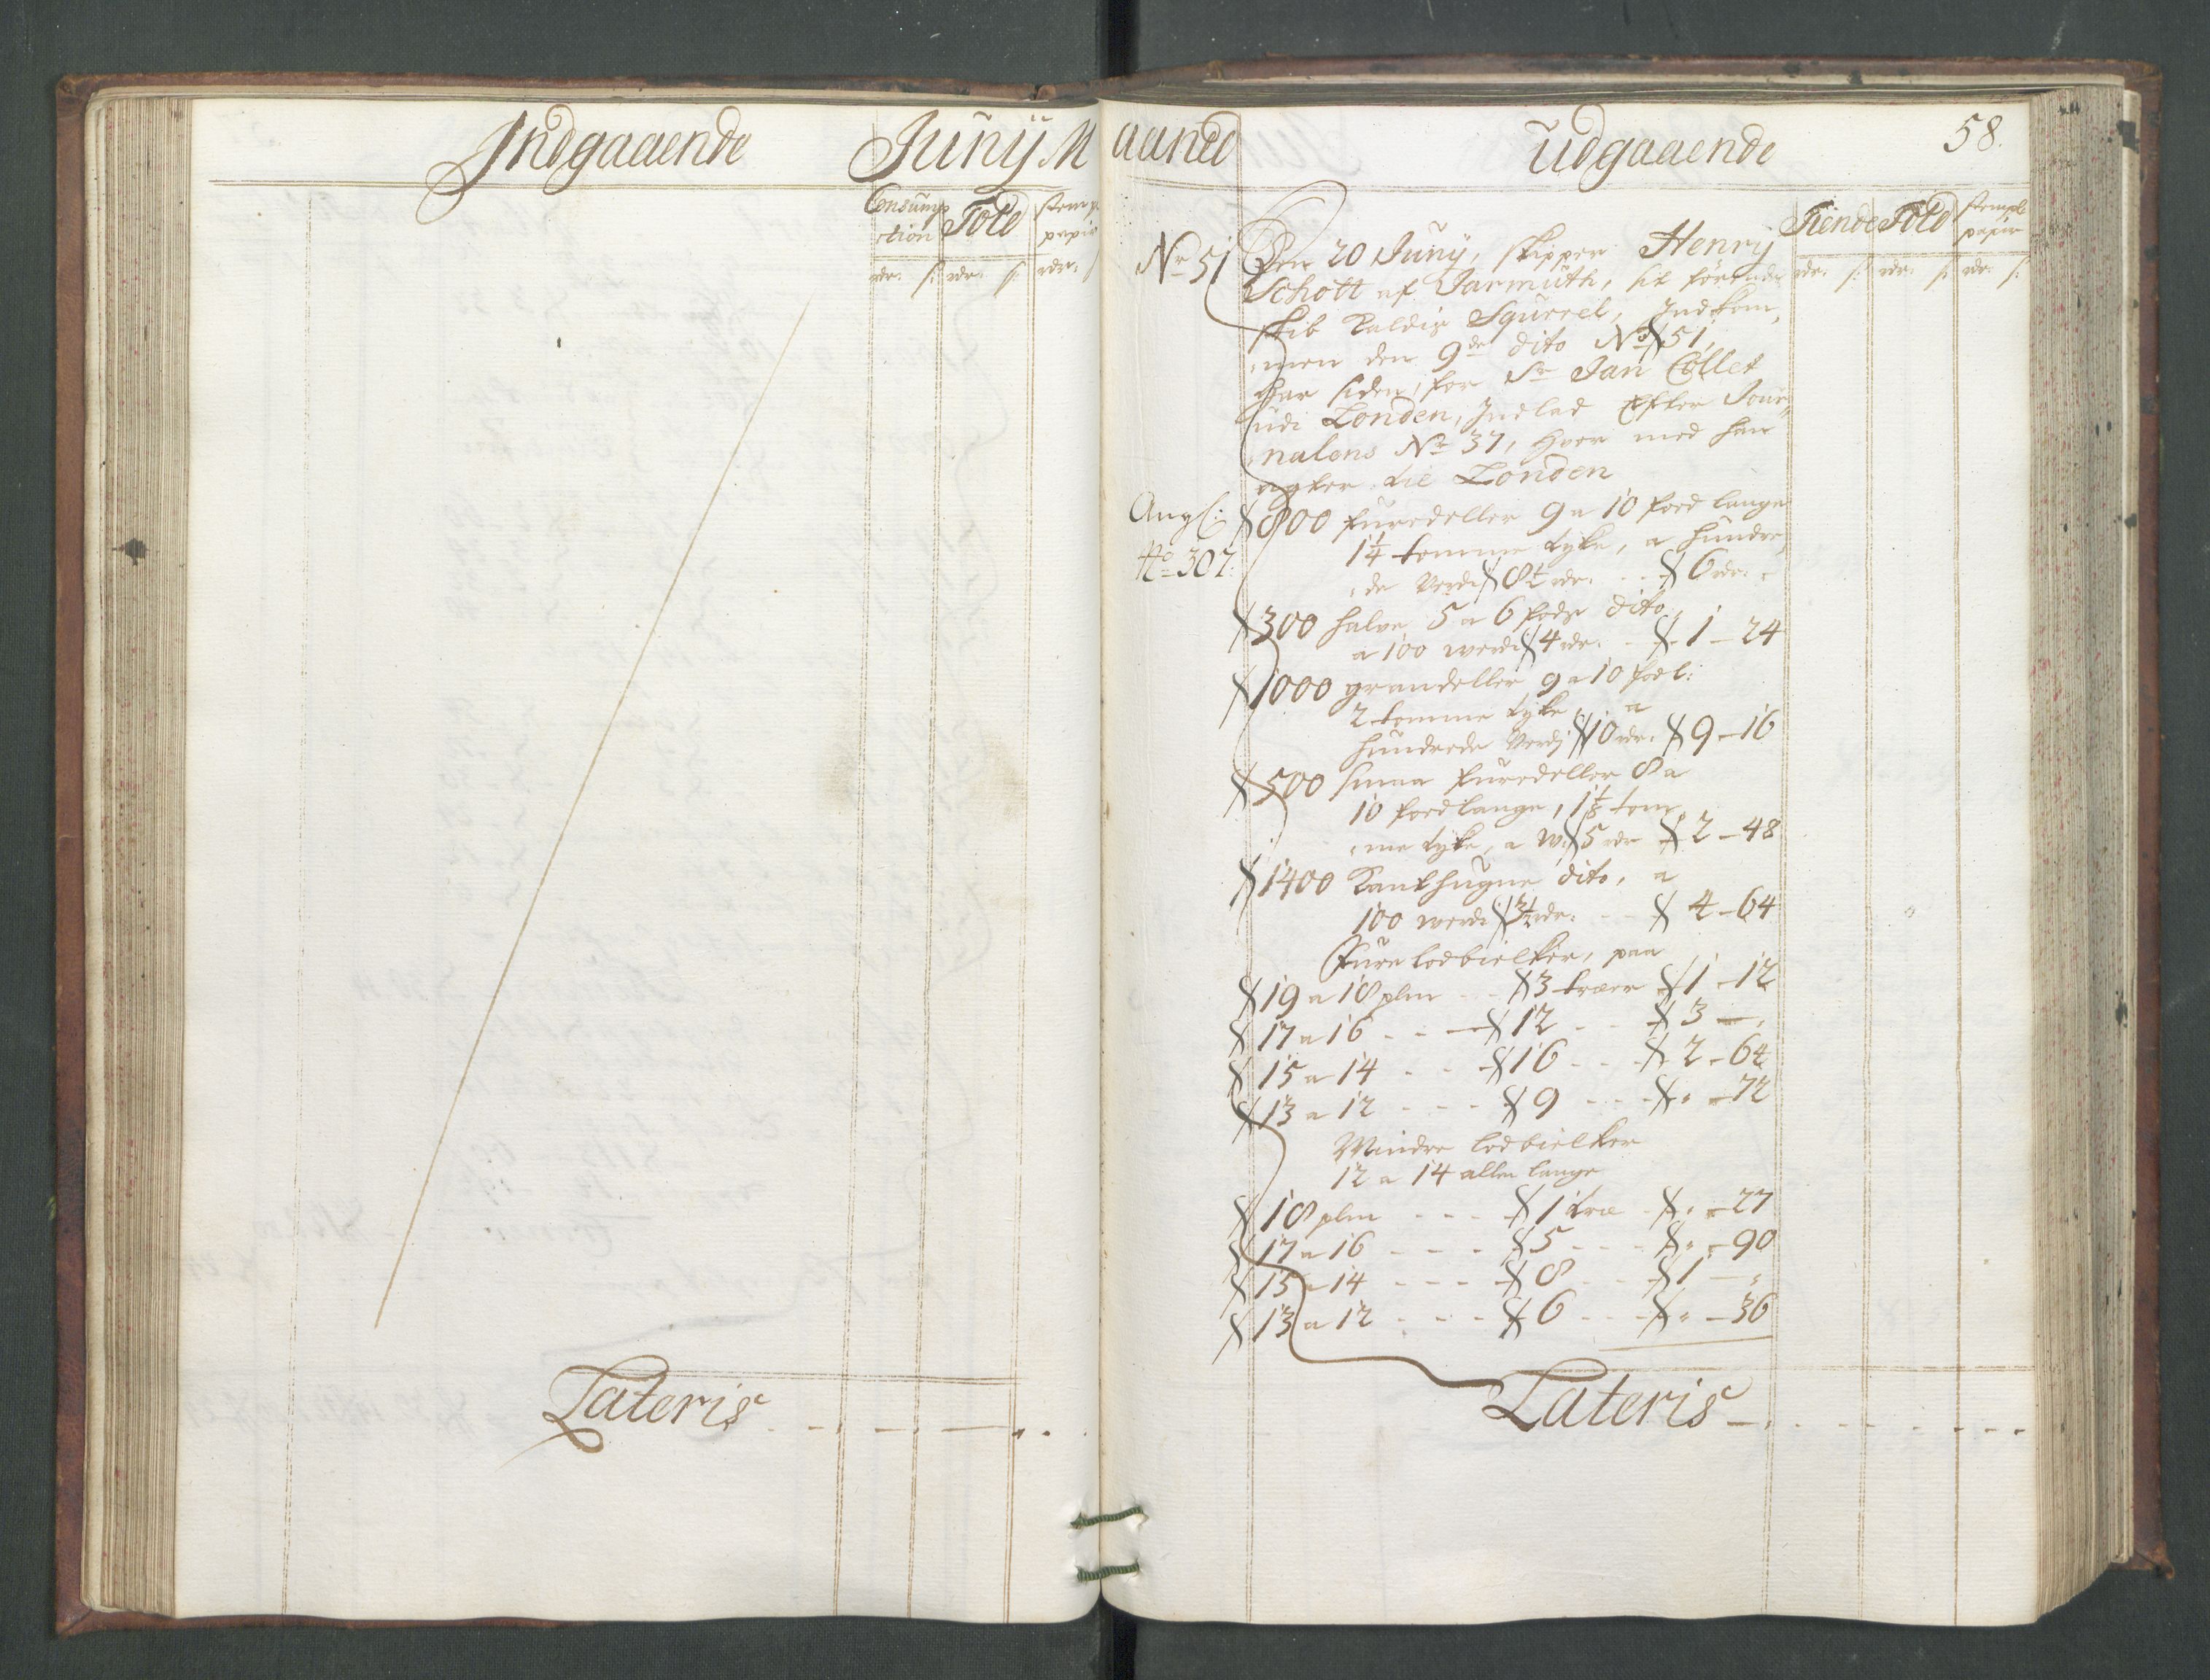 Indgaaende Junij M
Consump
ction Told Stempl
papir
rdr: s: rdr: s: rdr:
Lateris
aaned udgaaende 58.
Tiende Told stempl
papir
rdr: s: rdr: s: rdr: s:
Nr 51 Den 20 Junij, skipper Henrij
Schott af Jarmuth, sit førende
skib kaldis Squrrel, Indkom,
men den 9de dito No 51,
har siden, for Sr Jan Collet
udi Londen, Indlad Efter Jour,
nalens Nr 37, hvor med han
agter til Londen
Angl:
No 307:
800 furedeller 9 a 10 foed lange
1¼ tomme tyke, a hundre,
de Verdi 8½ rdr: 6 rdr:
300 halve 5 a 6 fods dito,
a 100 werdi 4 rdr: 1 - 24
1000 grandeller 9 a 10 fod l:
2 tomme tyke, a
hundrede Verdj 10 rdr: 9 - 16
500 smaa furedeller 8 a
10 foed lange, 1⅛ tom,
me tyke, a W: 5 rdr 2 - 48
1400 Kanthugne dito, a
100 werdi 3½ rdr: 4 - 64
Fure lodbielker, paa
19 a 18 plm 3 træer 1 - 12
17 a 16 12 3 -
15 a 14 16 2 - 64
13 a 12 9 " - 72
Mindre lodbielker
12 a 14 allen lange
18 plm 1 træ " - 27
17 a 16 5 " - 90
15 a 14 8 1 - "
13 a 12 6 " - 36
Lateris